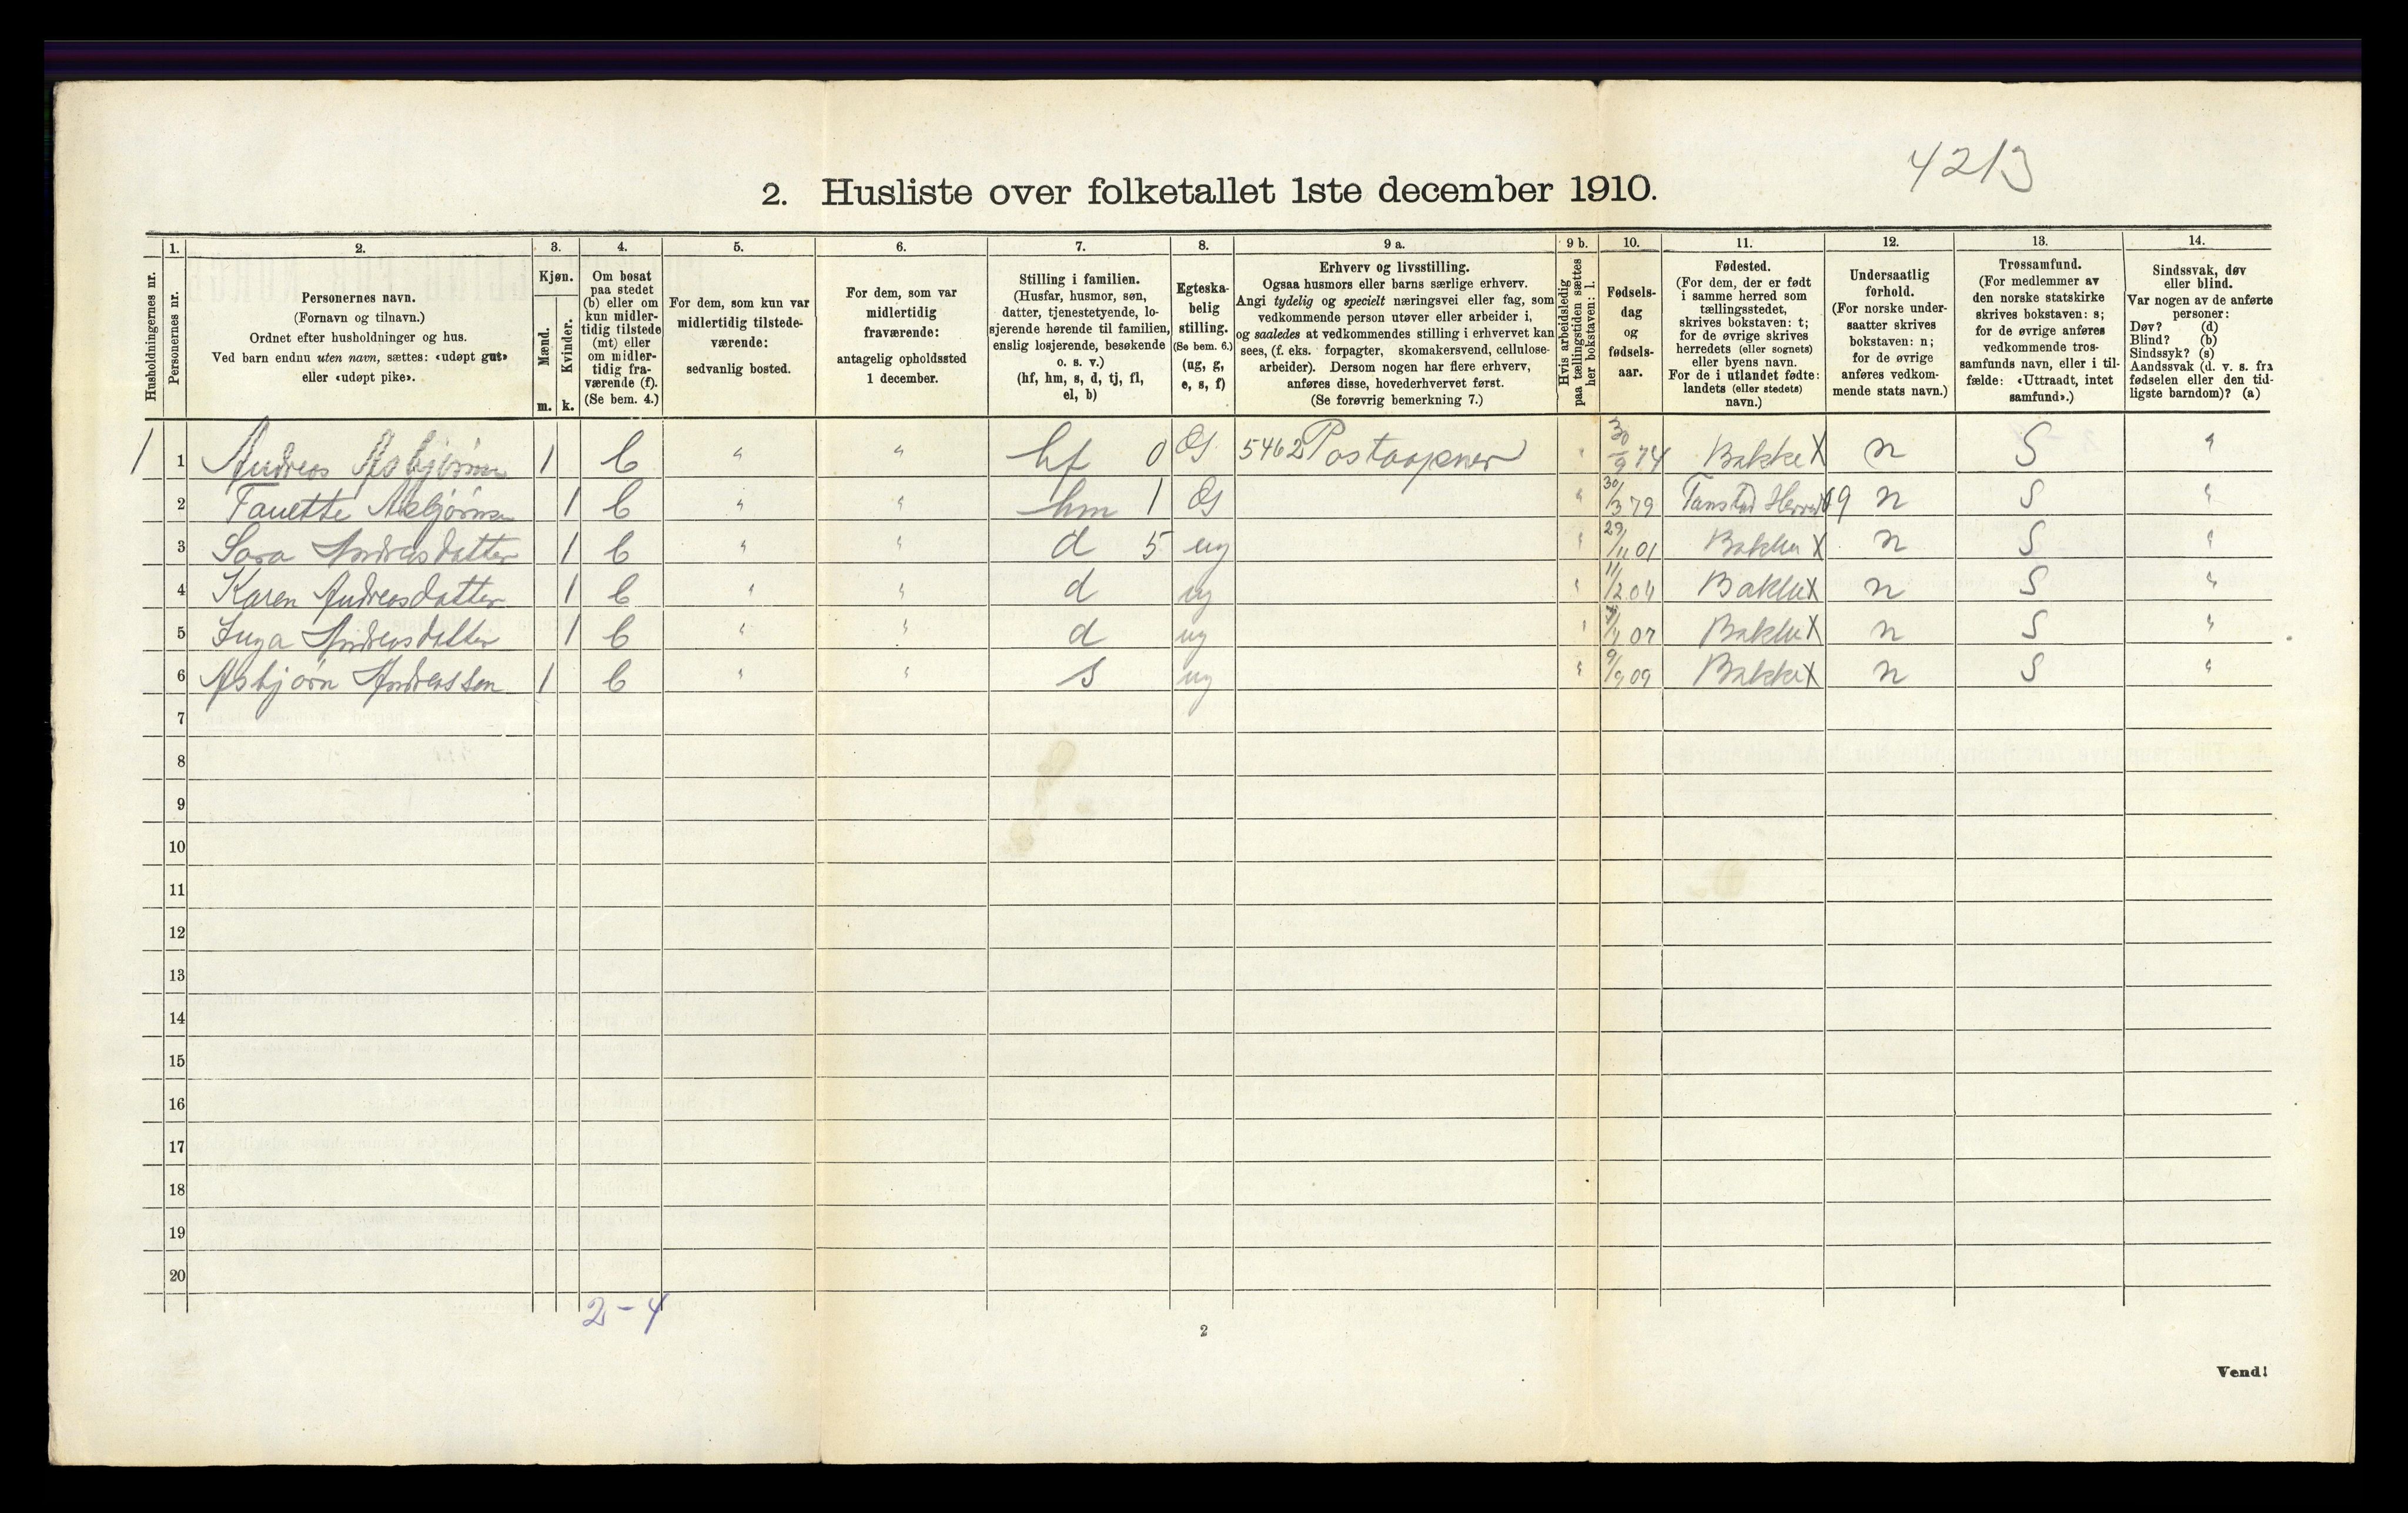 4213
2. Husliste over folketallet 1ste december 1910.
Husholdningernes nr.
1.
Personernes nr.
2.
Personernes navn.
(Fornavn og tilnavn.)
Ordnet efter husholdninger og hus.
Ved barn endnu uten navn, sættes: «udøpt gut»
eller «udøpt pike».
3.
Kjøn.
Mænd.
Kvinder.
m. k.
4.
Om bosat
paa stedet
(b) eller om
kun midler-
tidig tilstede
(mt) eller
om midler-
tidig fra-
værende (f).
(Se bem. 4.)
5.
For dem, som kun var
midlertidig tilstede-
værende:
sedvanlig bosted.
6.
For dem, som var
midlertidig
fraværende:
antagelig opholdssted
1 december.
7.
Stilling i familien.
(Husfar, husmor, søn,
datter, tjenestetyende, lo-
sjerende hørende til familien,
enslig losjerende, besøkende
o. s. v.)
(hf, hm, s, d, tj, fl,
el, b)
8.
Egteska-
belig
stilling.
(Se bem. 6.)
(ug, g,
e, s, f)
9 a.
Erhverv og livsstilling.
Ogsaa husmors eller barns særlige erhverv.
Angi tydelig og specielt næringsvei eller fag, som
vedkommende person utøver eller arbeider i,
og saaledes at vedkommendes stilling i erhvervet kan
sees, (f. eks. forpagter, skomakersvend, cellulose-
arbeider). Dersom nogen har flere erhverv,
anføres disse, hovederhvervet først.
(Se forøvrig bemerkning 7.)
9 b.
Hvis arbeidsledig
paa tællingstiden sættes
her bokstaven: l.
10.
Fødsels-
dag
og
fødsels-
aar.
11.
Fødested.
(For dem, der er født
i samme herred som
tællingsstedet,
skrives bokstaven: t;
for de øvrige skrives
herredets (eller sognets)
eller byens navn.
For de i utlandet fødte:
landets (eller stedets)
navn.)
12.
Undersaatlig
forhold.
(For norske under-
saatter skrives
bokstaven: n;
for de øvrige
anføres vedkom-
mende stats navn.)
13.
Trossamfund.
(For medlemmer av
den norske statskirke
skrives bokstaven: s;
for de øvrige anføres
vedkommende tros-
samfunds navn, eller i til-
fælde: «Uttraadt, intet
samfund».)
14.
Sindssvak, døv
eller blind.
Var nogen av de anførte
personer:
Døv? (d)
Blind? (b)
Sindssyk? (s)
Aandssvak (d. v. s. fra
fødselen eller den tid-
ligste barndom)? (a)
1 1 Andreas Asbjørnsen 1 b " " hf 0 g 5462 Postaapner " 30/9 74 Bakke X n S "
2 Fanette Asbjørnsen 1 b " " hm 1 g " 30/3 79 Herred n S "
3 Sara Andreasdatter 1 b " " d 5 ug " 29/11 01 Bakke X n S "
4 Karen Andreasdatter 1 b " " d ug " 11/2 04 Bakke X n S "
5 Inga Andreasdatter 1 b " " d ug " 07 Bakke X n S "
6 Asbjørn Andreassen 1 b " " s ug " 9/9 09 Bakke X n S "
7
8
9
10
11
12
13
14
15
16
17
18
19
20
2-4
2
Vend!